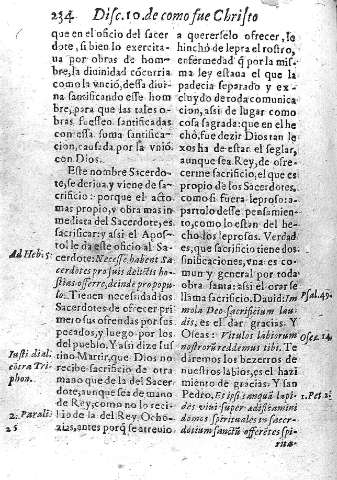 234 Disc. 10. de como fue Christo
que en el oficio del sacer
dote, si bien lo exercita-
ua por obras de hom-
bre, la diuinidad cõcurria
como la vnciõ, dessa diui
na santificando esse hom
bre, para que las tales o-
bras fuessen santificadas
con essa suma santifica-
cion, causada por la vniõ
con Dios.
Este nombre Sacerdo-
te, se deriua, y viene de sa-
crificio: porque el acto
mas propio, y obra mas in
mediata del Sacerdote, es
sacrificar: y assi el Apos-
tol le da este oficio al Sa-
Ad Heb. 5.
cerdote: Necesse habent Sa
cerdotes pro suis delictis ho-
stias offerre, deinde pro popu-
lo. Tienen necessidad los
Sacerdotes de ofrecer pri
mero sus ofrendas por sus
pecados, y luego por los
del pueblo. Y assi dize san
Iusti dial.
cõtra Tri-
phon.
Iustino Martir, que Dios no
recibe sacrificio de otra
mano que de la del Sacer
dote, aunque sea de mano
de Rey, como no lo reci-
2. Parali.
26
bio de la del Rey Ocho-
zias, antes porq̃ se atreuio
a quererselo ofrecer, le
hinchò de lepra el rostro,
enfermedad q̃ por la mis-
ma ley estaua el que la
padecia separado y ex-
cluydo de toda comunica
cion, assi de lugar como
cosa sagrada: que en el he-
chò, fue dezir Dios tan le
xos ha de estar el seglar,
aunque sea Rey, de ofre-
cerme sacrificio, el que es
propio de los Sacerdotes,
como si fuera leproso: a-
partolo desse pensamien-
to, como lo estàn del he-
cho los leprosos. Verdad
es, que sacrificio tiene dos
sinificaciones, vna es co-
mun y general por toda
obra santa: assi el orar se
llama sacrificio. Dauid: Im
Psal. 49.
mola Deo sacrificium lau-
dis, es el dar gracias. Y
Oseas: Vitulos labiorum
Osee 14.
nostrorũ reddemus tibi. Te
daremos los bezerros de
nuestros labios, es el hazi
miento de gracias. Y san
Pedro, Et ipsi tanquã lapi-
1. Pet. 2.
des viui super ædificamini
domus spirituales in sacer-
dotium sanctũ offerẽtes spi-
ritua-